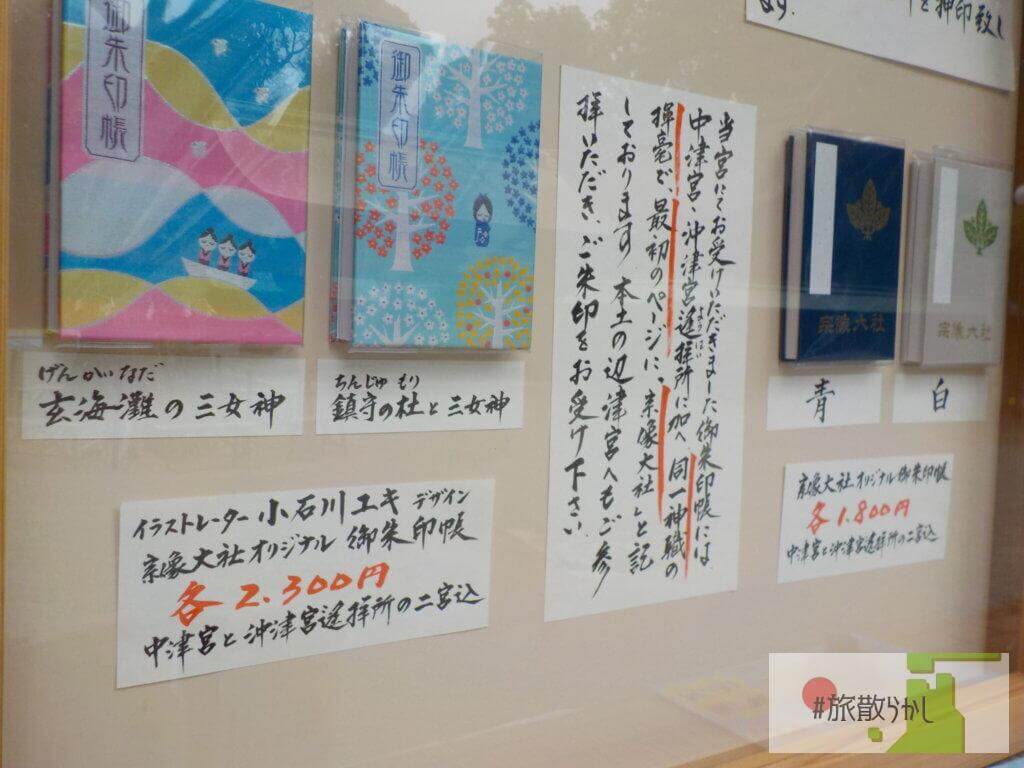 を押印致し
ます.
御朱印帳
御朱印帳
げんかいなだ
玄海灘の三女神
ちんじゅ もり
鎮守の杜と三女神
イラストレーター 小石川ユキ デザイン
宗像大社オリジナル 御朱印帳
各2.300円
中津宮と沖津宮遥拝所の二宮込
当宮にてお受けいただきました御朱印帳には
中津宮、沖津宮遥拝所に加へ、同一神職の
ようはい
揮毫で、最初のページに「宗像大社」と記
しております 本土の辺津宮へもご参
拝いただき、ご朱印をお受け下さい.
宗像大社
宗像大社
青
白
宗像大社オリジナル御朱印帳
各1.800円
中津宮と沖津宮遥拝所の二宮込
#旅散らかし